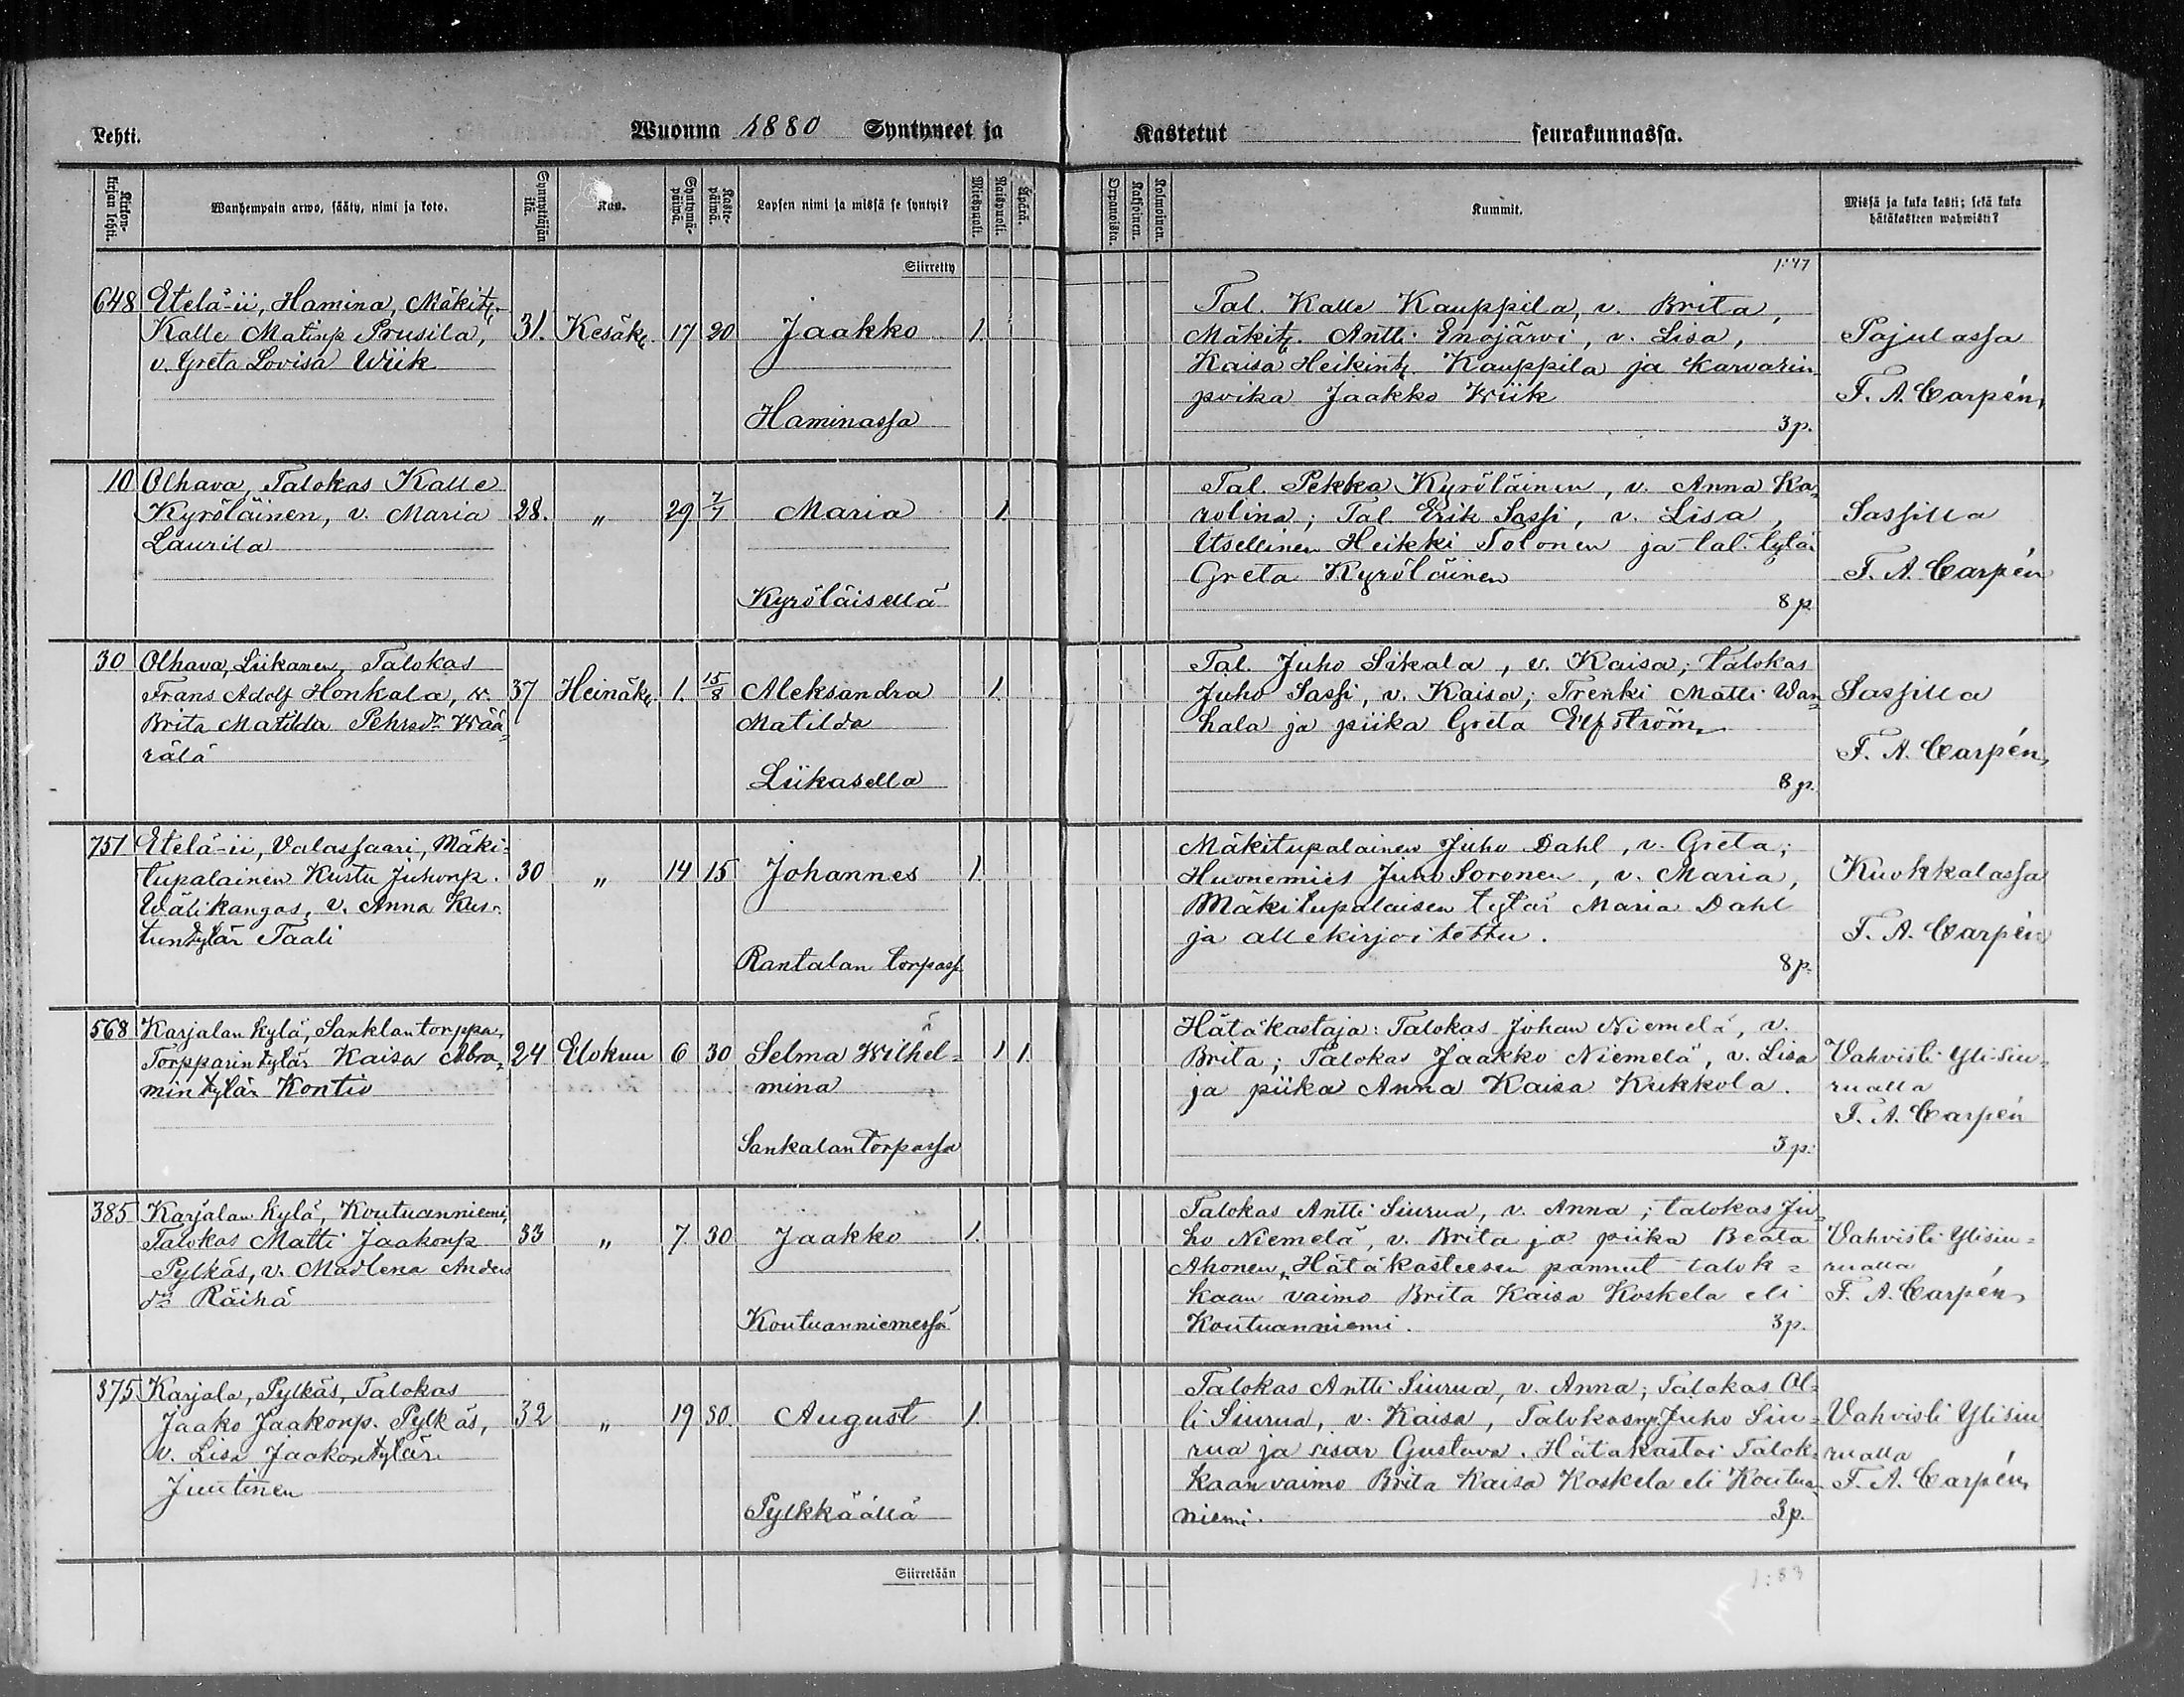 Lehti.
Wuonna 1880 Syntyneet ja
Kastetut seurakunnassa.
Kirkon-kirjan lehti.
Wanhempain arwo, sääty, nimi ja koto.
Synnyttäjän ikä.
Kuu.
Syntymä-päiwä.
Kaste-päiwä.
Lapsen nimi ja missä se syntyi?
Miespuoli.
Naispuoli.
Äpärä.
Orpanoista.
Kaksoinen.
Kolmoinen.
Kummit.
Missä ja kuka kasti; sekä kuka hätäkasteen wahwisti?
Siirretty
1:47
648 Etelä-ii, Hamina, Mäkit.
Kalle Matinp Prusila, 31. Kesäk. 17 20 Jaakko 1.
v. Greta Lovisa Wiik
Haminassa
Tal. Kalle Kauppila, v. Brita,
Mäkit. Antti Enojärvi, v. Lisa,
Kaisa Heikint. Kauppila ja karvarin
poika Jaakko Wiik
3 p.
Pajulassa
F. A. Carpén
10 Olhava, Talokas Kalle
Kyröläinen, v. Maria 28. „ 29 7/7 Maria 1.
Laurila
Kyröläisellä
Tal. Pekka Kyröläinen, v. Anna Ka-
rolina; Tal. Erik Sassi, v. Lisa,
Itsellinen Heikki Tolonen ja tal. tytär
Greta Kyröläinen
8 p
Sassilla
F. A. Carpén
30 Olhava, Liikanen, Talokas
Frans Adolf Honkala, v. 37 Heinäk. 1. 15/8 Aleksandra 1.
Brita Matilda Pehrsdr Wää- Matilda
rälä
Liikasella
Tal. Juho Sikala, v. Kaisa; talokas
Juho Sassi, v. Kaisa; Trenki Matti Wan-
hala ja piika Greta Elfström
8 p.
Sassilla
F. A. Carpén
751 Etelä-ii, Valassaari, Mäki-
tupalainen Kustu Juhonp. 30 „ 14 15 Johannes 1.
Wälikangas, v. Anna Kus-
tuntytär Taali
Rantalan torpass.
Mäkitupalainen Juho Dahl, v. Greta;
Huonemies Juho Soronen, v. Maria,
Mäkitupalaisen tytär Maria Dahl
ja allekirjoitettu.
8 p.
Kuokkalassa
F. A. Carpén
568 Karjalan kylä, Sanklan torppa,
Torpparin tytär Kaisa Abra- 24 Elokuu 6 30 Selma Wilhel- 1 1.
mintytär Kontio mina
Sankalan torpassa
Hätäkastaja: Talokas Johan Niemelä, v.
Brita; Talokas Jaakko Niemelä, v. Lisa
ja piika Anna Kaisa Kukkola.
3 p.
Vahvisti Ylisiu-
rualla
F. A. Carpén
385 Karjalan kylä, Koutuanniemi,
Talokas Matti Jaakonp 33 „ 7. 30 Jaakko 1.
Pylkäs, v. Madlena Anders
dr Räihä
Koutuanniemessä
Talokas Antti Siurua, v. Anna; talokas Ju-
ho Niemelä, v. Brita ja piika Beata
Ahonen, Hätäkasteesen pannut talok-
kaan vaimo Brita Kaisa Koskela eli
Koutuanniemi. 3 p.
Vahvisti Ylisiu-
rualla
F. A. Carpén
375 Karjala, Pylkäs, Talokas
Jaako Jaakonp. Pylkäs, 32 „ 19 30. August 1.
v. Lisa Jaakontytär
Juutinen
Pylkkäällä
Talokas Antti Siurua, v. Anna; Talokas Ol-
li Siurua, v. Kaisa, Talokasp. Juho Siu-
rua ja sisar Gustava. Hätäkastoi Talok-
kaan vaimo Brita Kaisa Koskela eli Koutua-
niemi. 3 p.
Vahvisti Ylisiu
rualla
F. A. Carpén
Siirretään
1:83